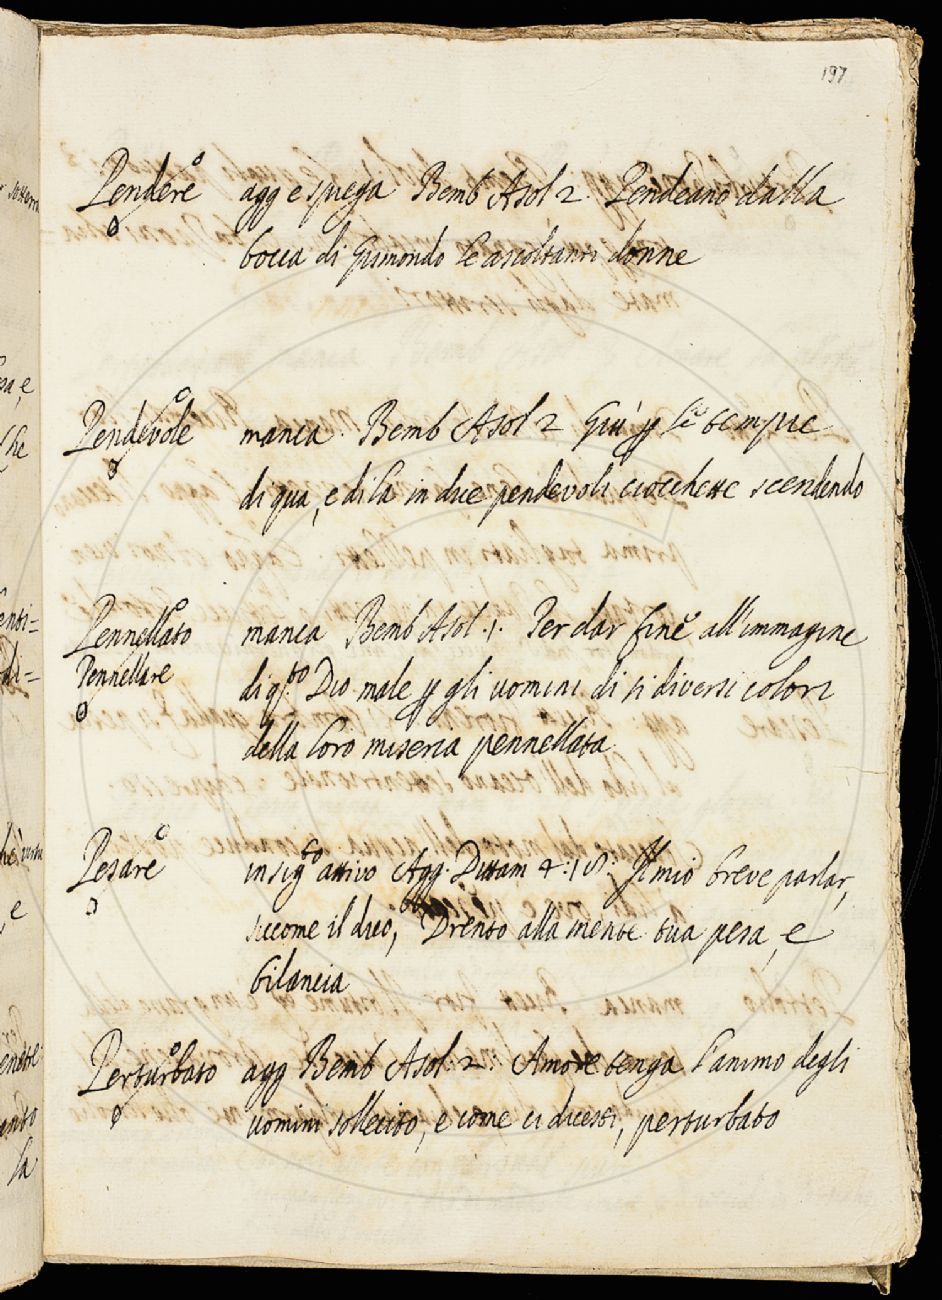 197
Pendere agg e spiega Bemb Asol 2. Pendeano dalla
bocca di Gismondo le ascoltanti donne
Pendevole manca. Bemb Asol 2 Giù p le tempie
di qua, e di la in due pendevoli ciocchette scendendo
Pennellato manca Bemb Asol .1. Per dar fine all'immagine
Pennellare di q.to Dio male p gli uomini di sì diversi colori
della loro miseria pennellata
Pesare in sig.to attivo Agg. Dittam 4: Il mio breve parlar,
siccome il dico, Drento alla mente tua pesa, e
bilancia
Perturbato agg Bemb Asol. 2: Amore tenga l'animo degli
uomini sollecito, e come ci dicesti, perturbato